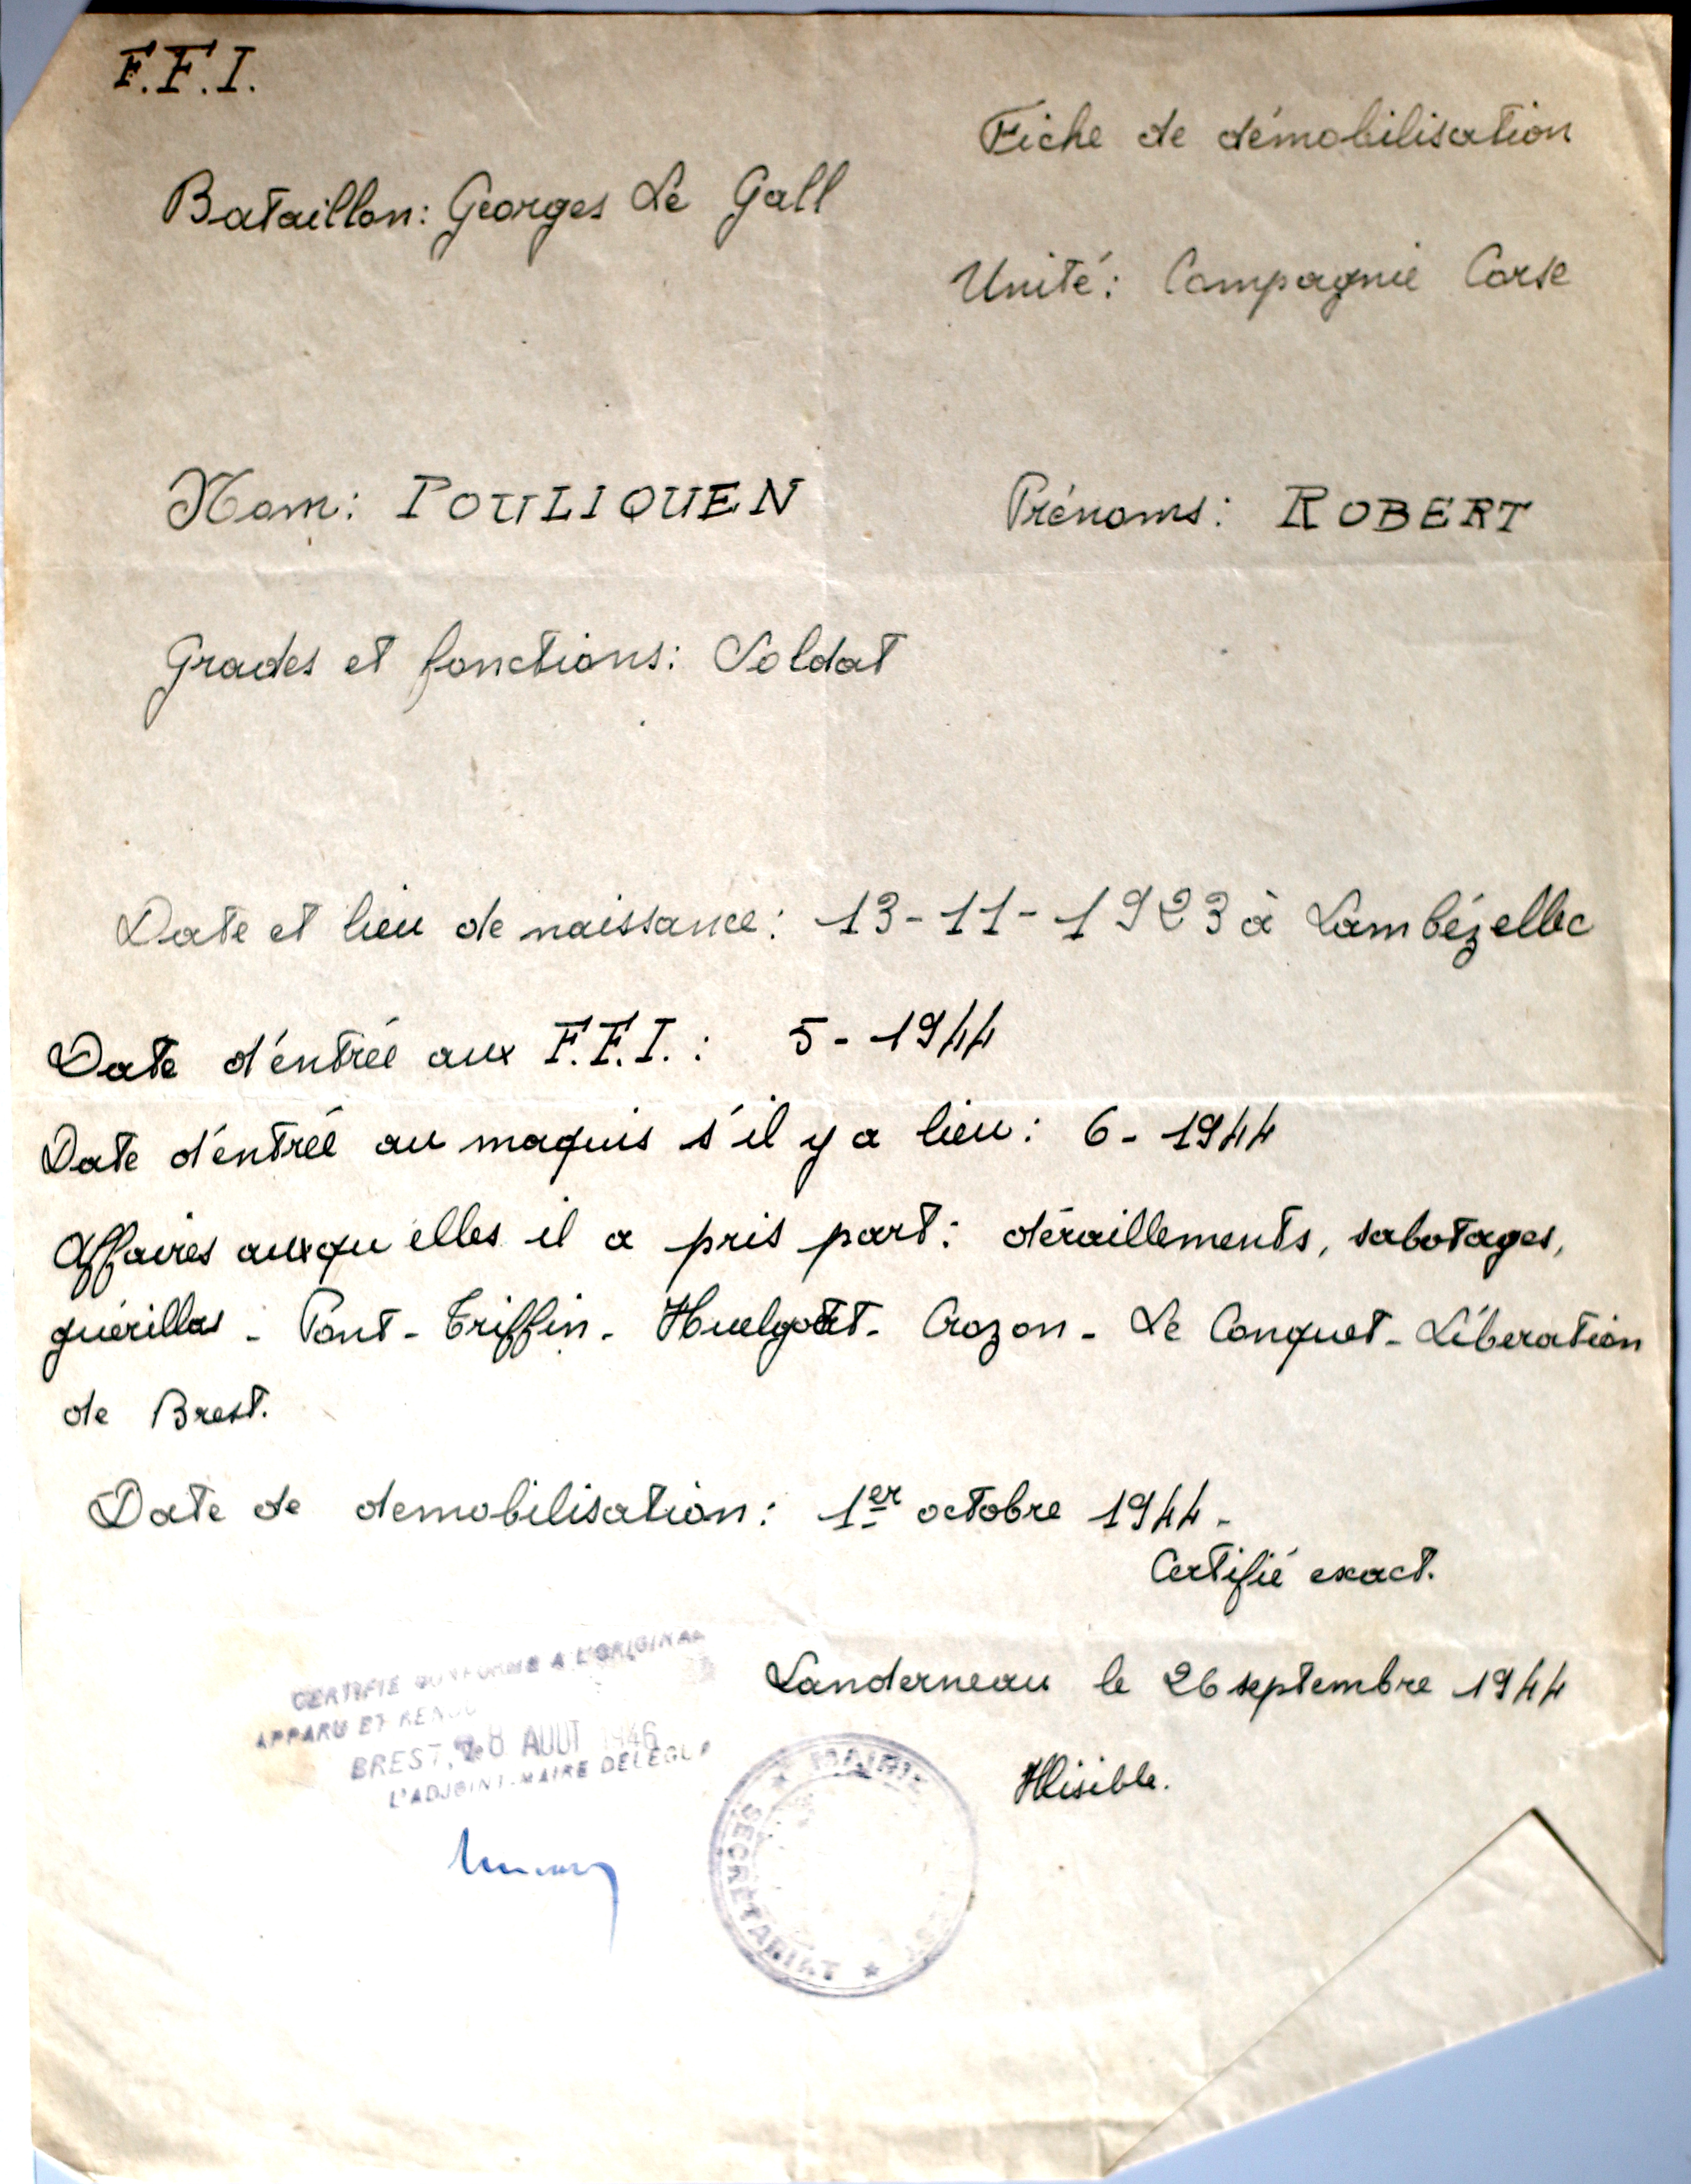 F.F.I.
Fiche de démobilisation
Bataillon: Georges Le Gall
Unité: Compagnie Corse
Nom: POULIQUEN
Prénoms: ROBERT
Grades et fonctions: Soldat
Date et lieu de naissance: 13-11-1923 à Lambézellec
Date d'entrée aux F.F.I.: 5-1944
Date d'entrée au maquis s'il y a lieu: 6-1944
Affaires auxquelles il a pris part: déraillements, sabotages,
guérillas - Pont-Triffin - Huelgoat - Crozon - Le Conquet - Libération
de Brest.
Date de demobilisation: 1er octobre 1944 -
Certifié exact.
Landerneau le 26 septembre 1944
Illisible.
CERTIFIE CONFORME A L'ORIGINAL
APPARU ET RENDU
BREST, 8 AOUT 1946
L'ADJOINT-MAIRE DELEGUE
MAIRIE
SECRETARIAT